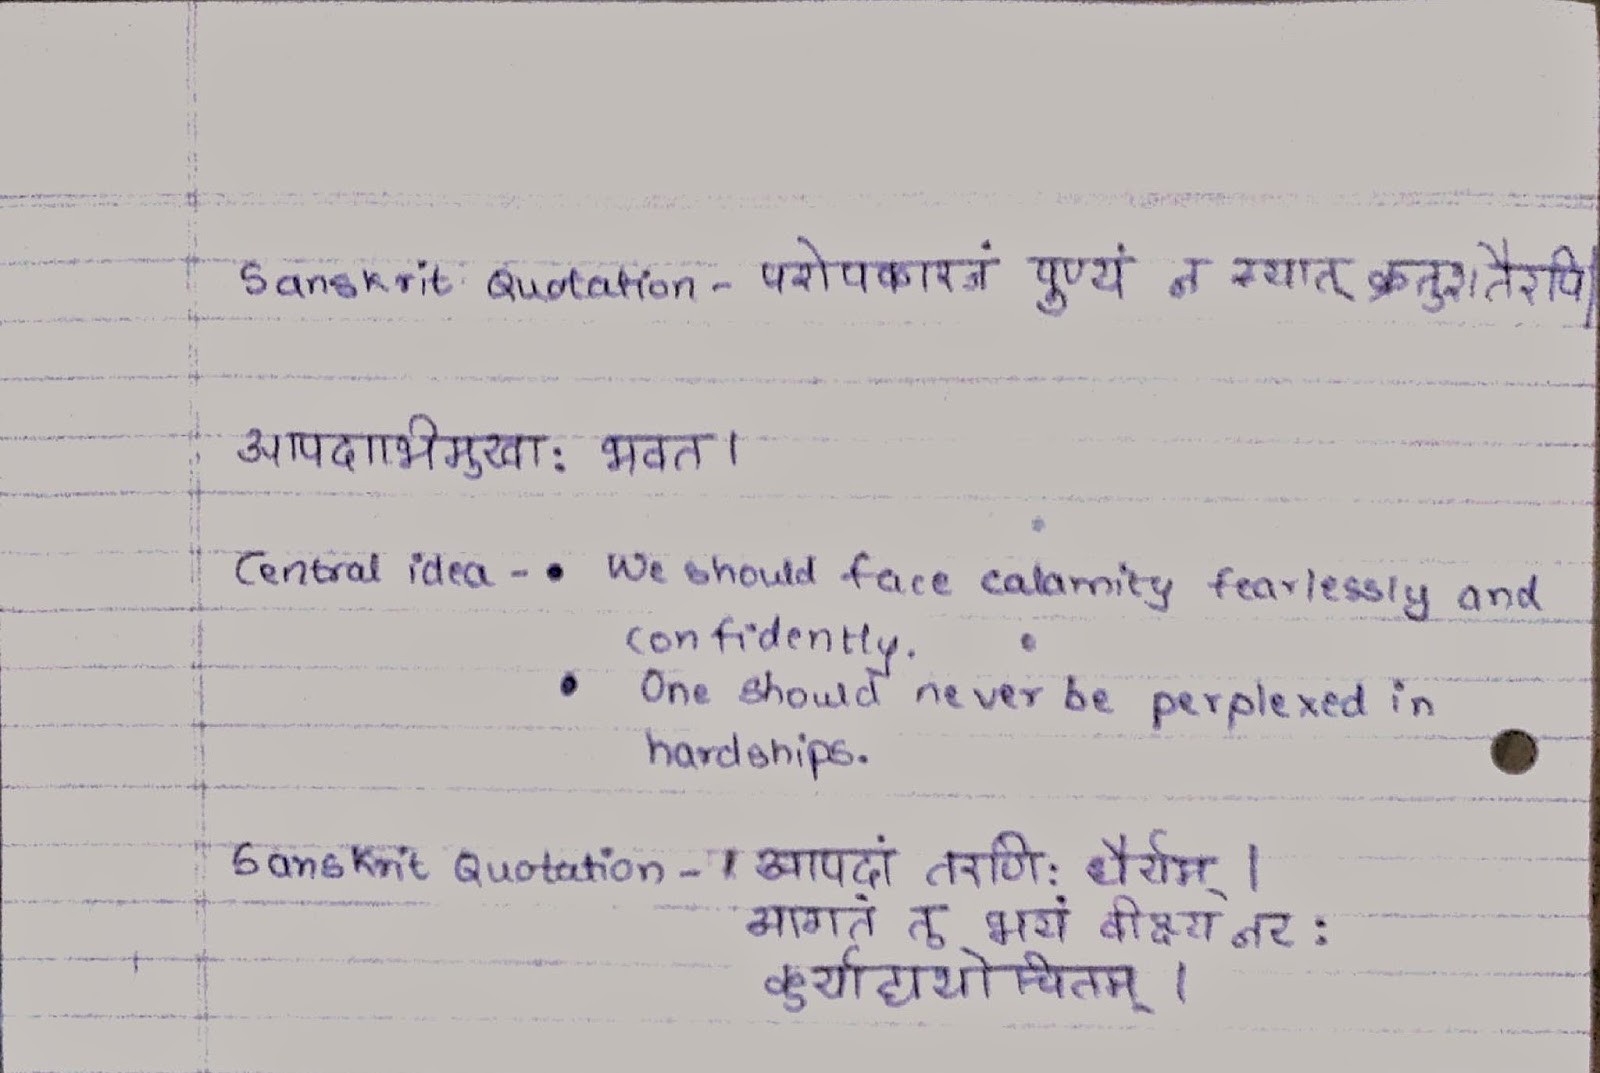 Sanskrit Quotation - परोपकारजं पुण्यं न स्यात् क्रतुशतैरपि।
आपदाभिमुखाः भवत।
Central idea - • We should face calamity fearlessly and
confidently.
• One should never be perplexed in
hardships.
Sanskrit Quotation - आपदां तरणिः धैर्यम्।
आगतं तु भयं वीक्ष्य नरः
कुर्याद्यथोचितम्।